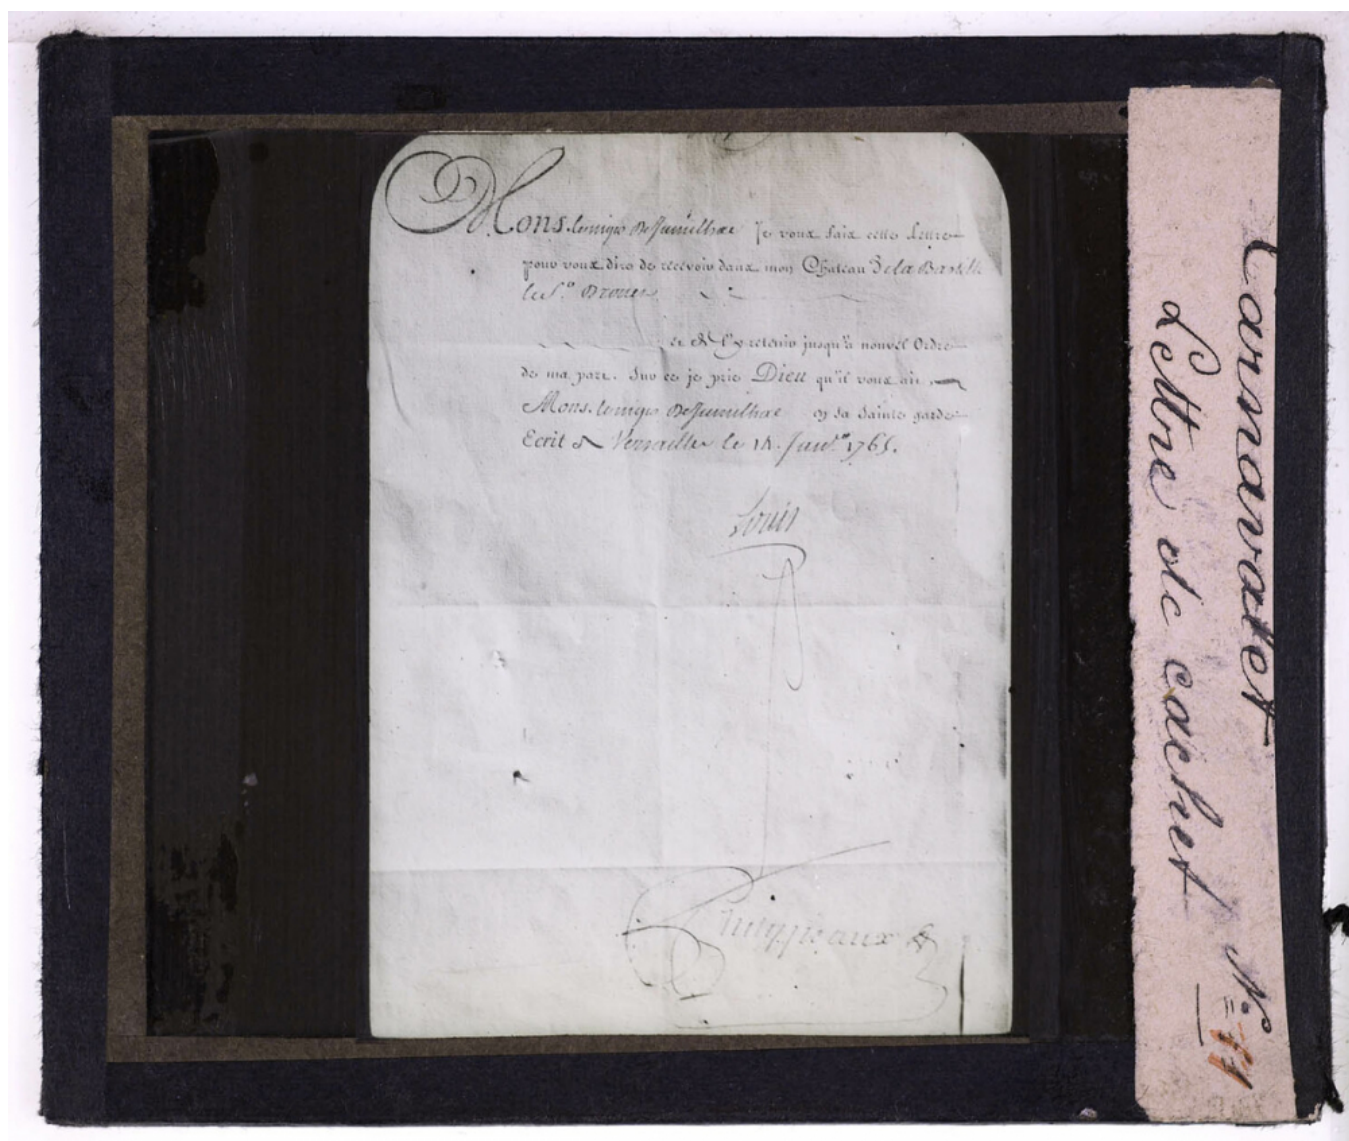 Mons. le marquis De Jumilhac Je vous fais cette lettre
pour vous dire de recevoir dans mon Chateau de la Bastille
le S.r
et de l'y retenir jusqu'à nouvel Ordre
de ma part. Sur ce je prie Dieu qu'il vous ait
Mons. le marquis De Jumilhac en sa sainte garde
Ecrit à Versailles le 14. Janv.er 1765.
Louis
Phelypeaux
Carnavalet N.o
Lettre de cachet